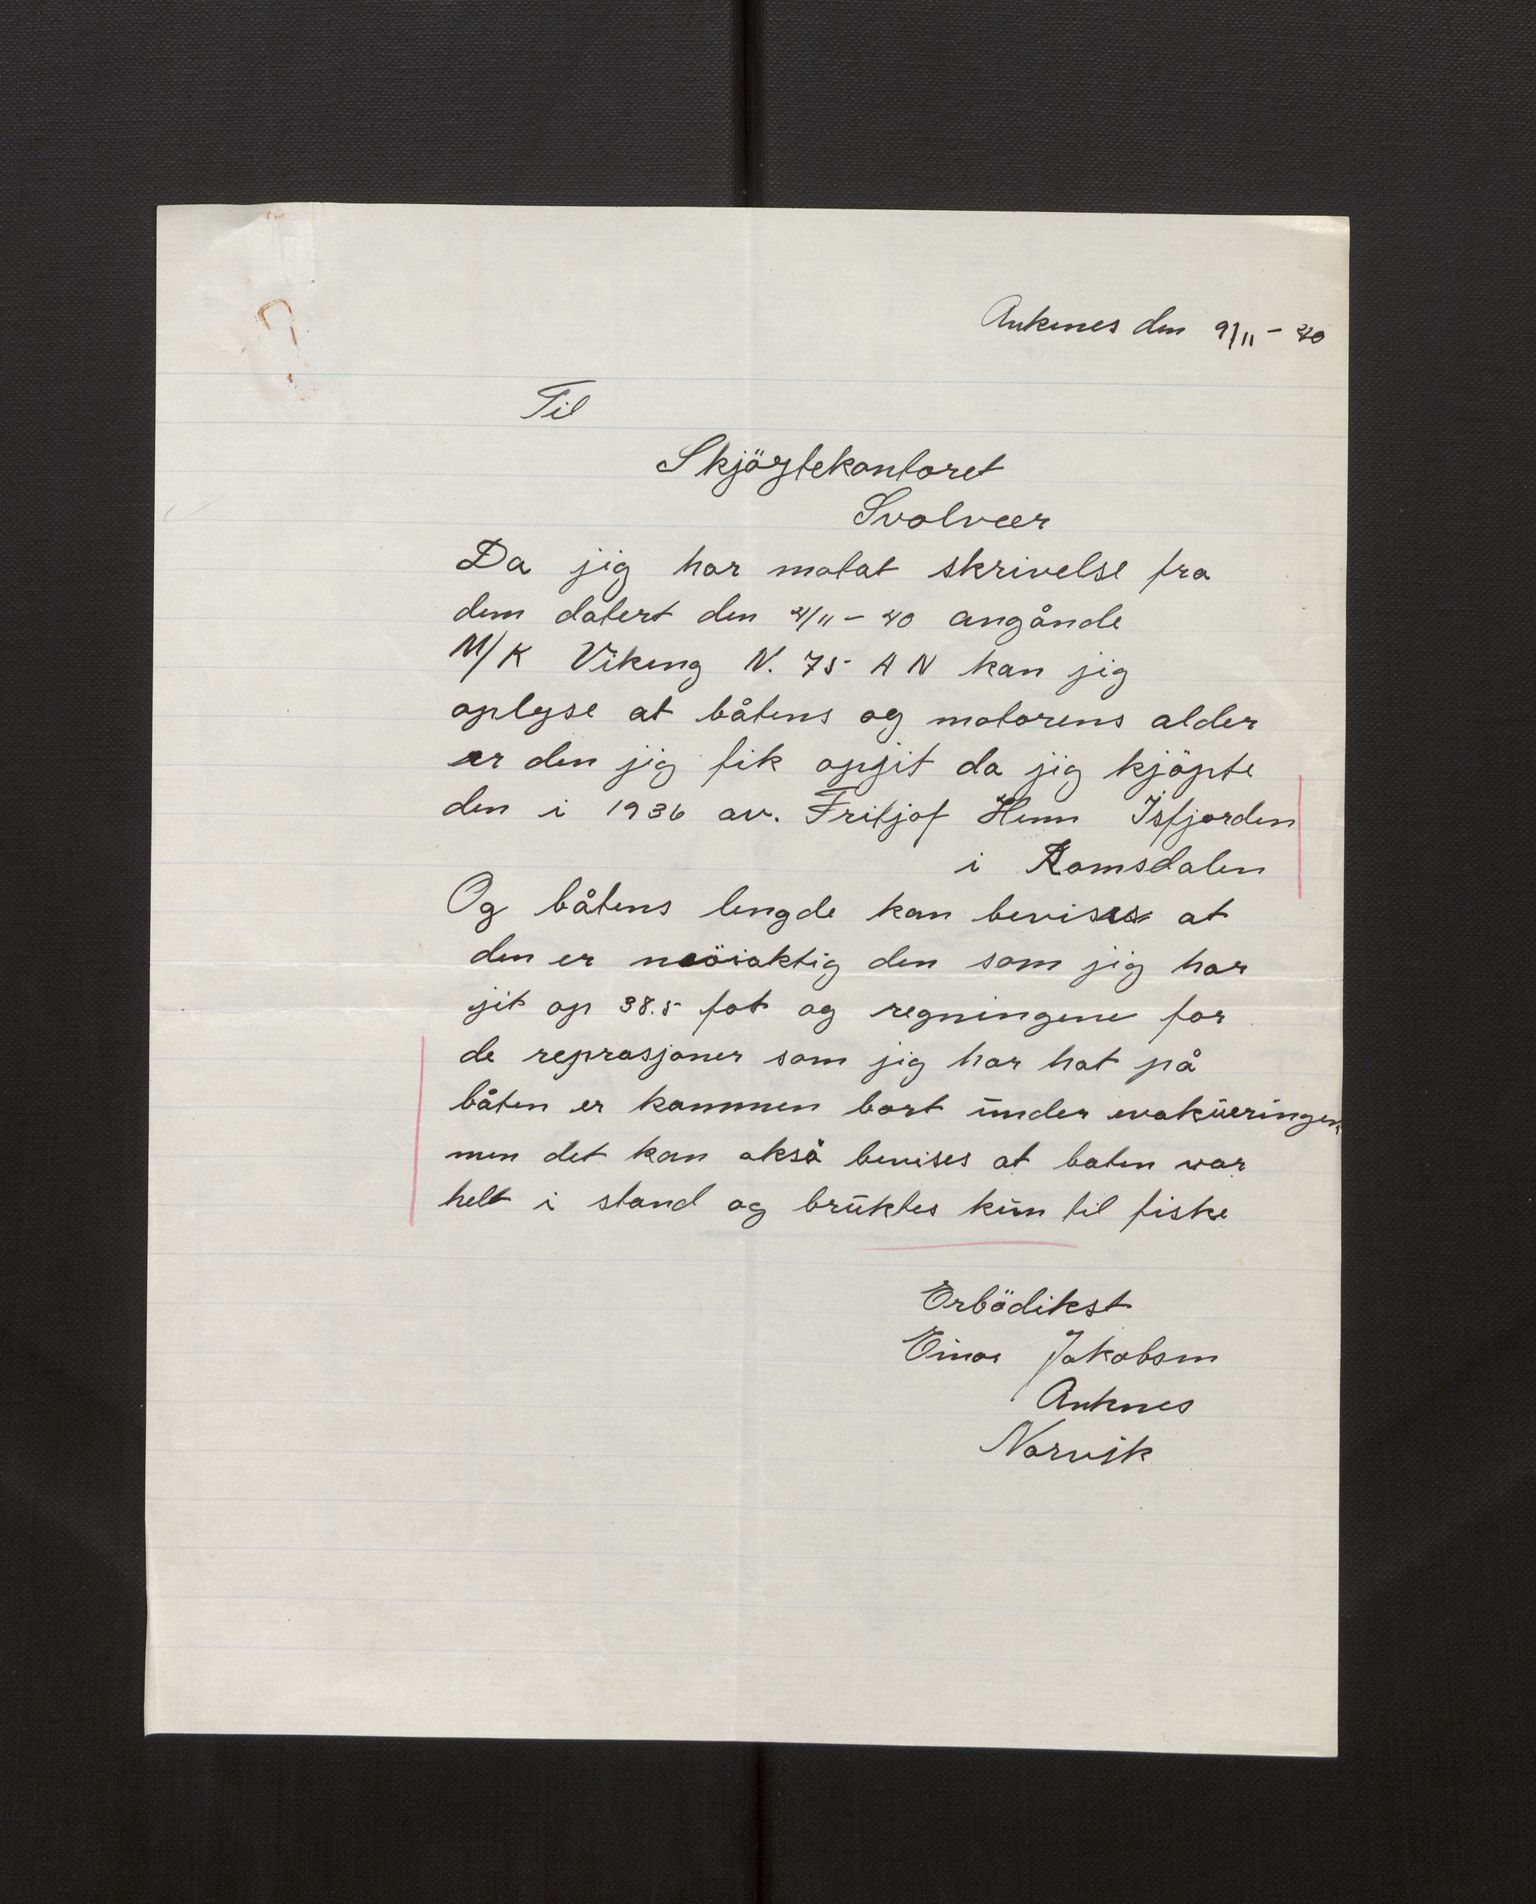 Ankenes den 9/11 – 40
Til
Skjöytekontoret
Svolveer
Da jig har motat skrivelse fra
dem datert den 4/11 – 40 angånde
M/K Viking N. 75 AN kan jig
oplyse at båtens og motorens alder
er den jig fik opjit da jig kjöpte
den i 1936 av. Fritjof Henn Isfjorden
i Romsdalen
Og båtens lengde kan bevises at
den er nöiaktig den som jig har
jit op 38.5 fot og regningene for
de reprasjoner som jig har hat på
båten er kommen bort under evakueringen
men det kan också bevises at baten var
helt i stand og bruktes kun til fiske
Erbödikst
Einar Jakobsen
Anknes
Narvik